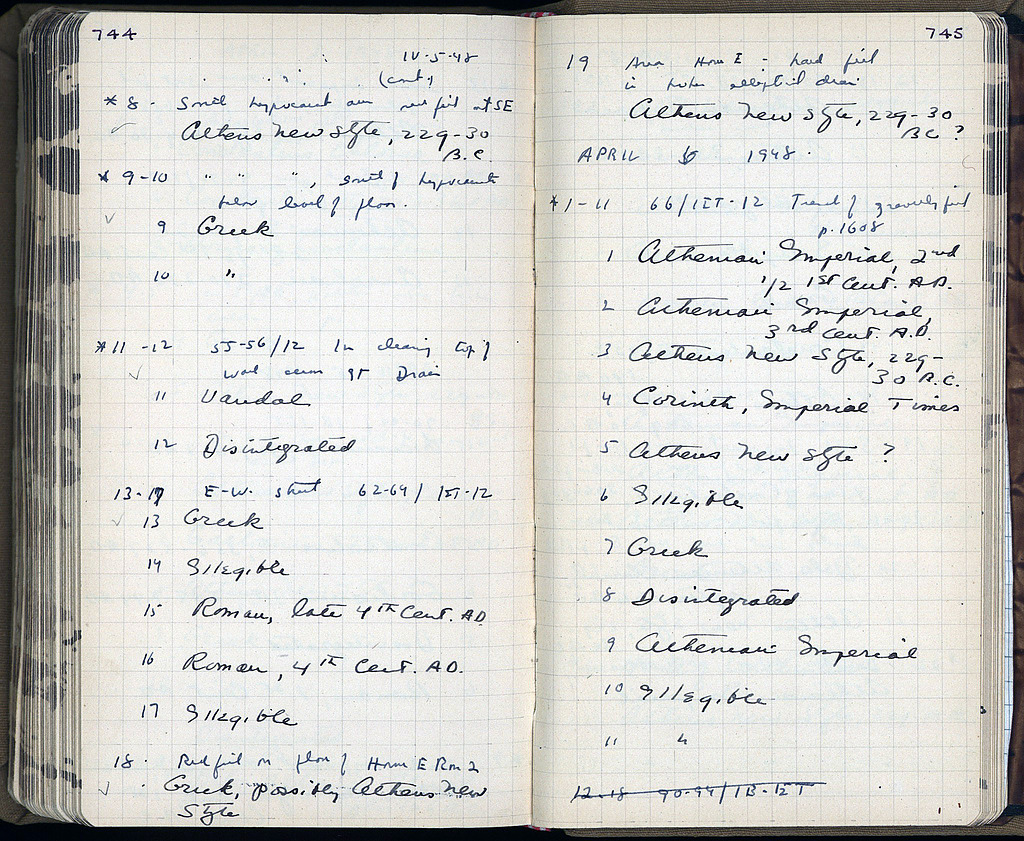 744
IV·5·48
" " "
(cont.)
* 8 · South hypocaust area red fill at SE
Athens New Style, 229-30
B.C.
* 9-10 " " ", south of hypocausts
below level of floor.
9 Greek
10 "
*11 -12 55-56/12 In cleaning top of
wall Drain
11 Vandal
12 Disintegrated
13-17 E-W. street 62-64/ ΙΣΤ-12
13 Greek
14 Illegible
15 Roman, late 4th Cent. A.D.
16 Roman, 4th Cent. A.D.
17 Illegible
18 · Red fill on floor of House E Rm 2
Greek, possibly Athens New
Style
745
19 Area House E - hard fill
in elliptical drain
Athens New Style, 229-30
B.C ?
APRIL 1948 ·
*1-11 66/ΙΣΤ-12 Trench of gravelly fill
p.1608
1 Athenian Imperial, 2nd
1/2 1st Cent. A.D.
2 Athenian Imperial,
3rd Cent. A.D.
3 Athens New Style, 229-
30 B.C.
4 Corinth, Imperial Times
5 Athens New Style ?
6 Illegible
7 Greek
8 Disintegrated
9 Athenian Imperial
10 Illegible
11 "
12-18 90-94/ΙΒ-ΙΣΤ